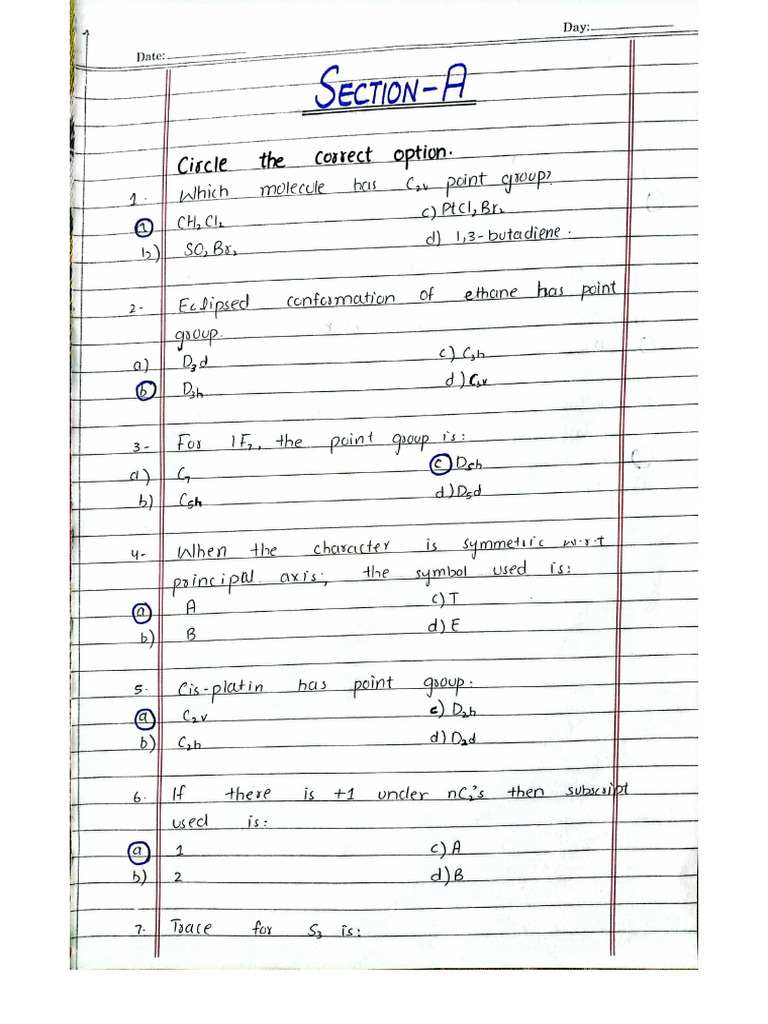 Day:
Date:
SECTION-A
Circle the correct option.
1. Which molecule has C₂ᵥ point group?
a) CH₂Cl₂ c) PtCl₂Br₂
b) SO₂Br₂ d) 1,3-butadiene.
2- Eclipsed conformation of ethane has point
group.
a) D₃d c) C₃h
b) D₃h d) C₃v
3- For IF₇, the point group is:
a) C₇ c) D₅h
b) C₅h d) D₅d
4- When the character is symmetric w.r.t
principal axis; the symbol used is:
a) A c) T
b) B d) E
5. Cis-platin has point group:
a) C₂v c) D₂h
b) C₂h d) D₂d
6. If there is +1 under nC₂'s then subscript
used is:
a) 1 c) A
b) 2 d) B
7. Trace for S₃ is: